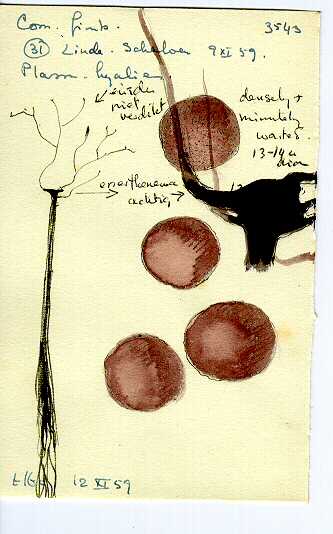 Com. fimb. 3543
(31) Linde. Scheloer 9 XI 59.
Plasm. hyalien
einden
niet
verdikt
densely +
minutely
warted.
13-14 u
diam
enerthenema
achtig
12 XI 59